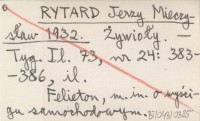 RYTARD Jerzy Mieczy-
sław 1932. Żywioły. —
Tyg. Il. 73, nr 24: 383-
-386, il.
Felieton, m.in. o wyści-
gu samochodowym.